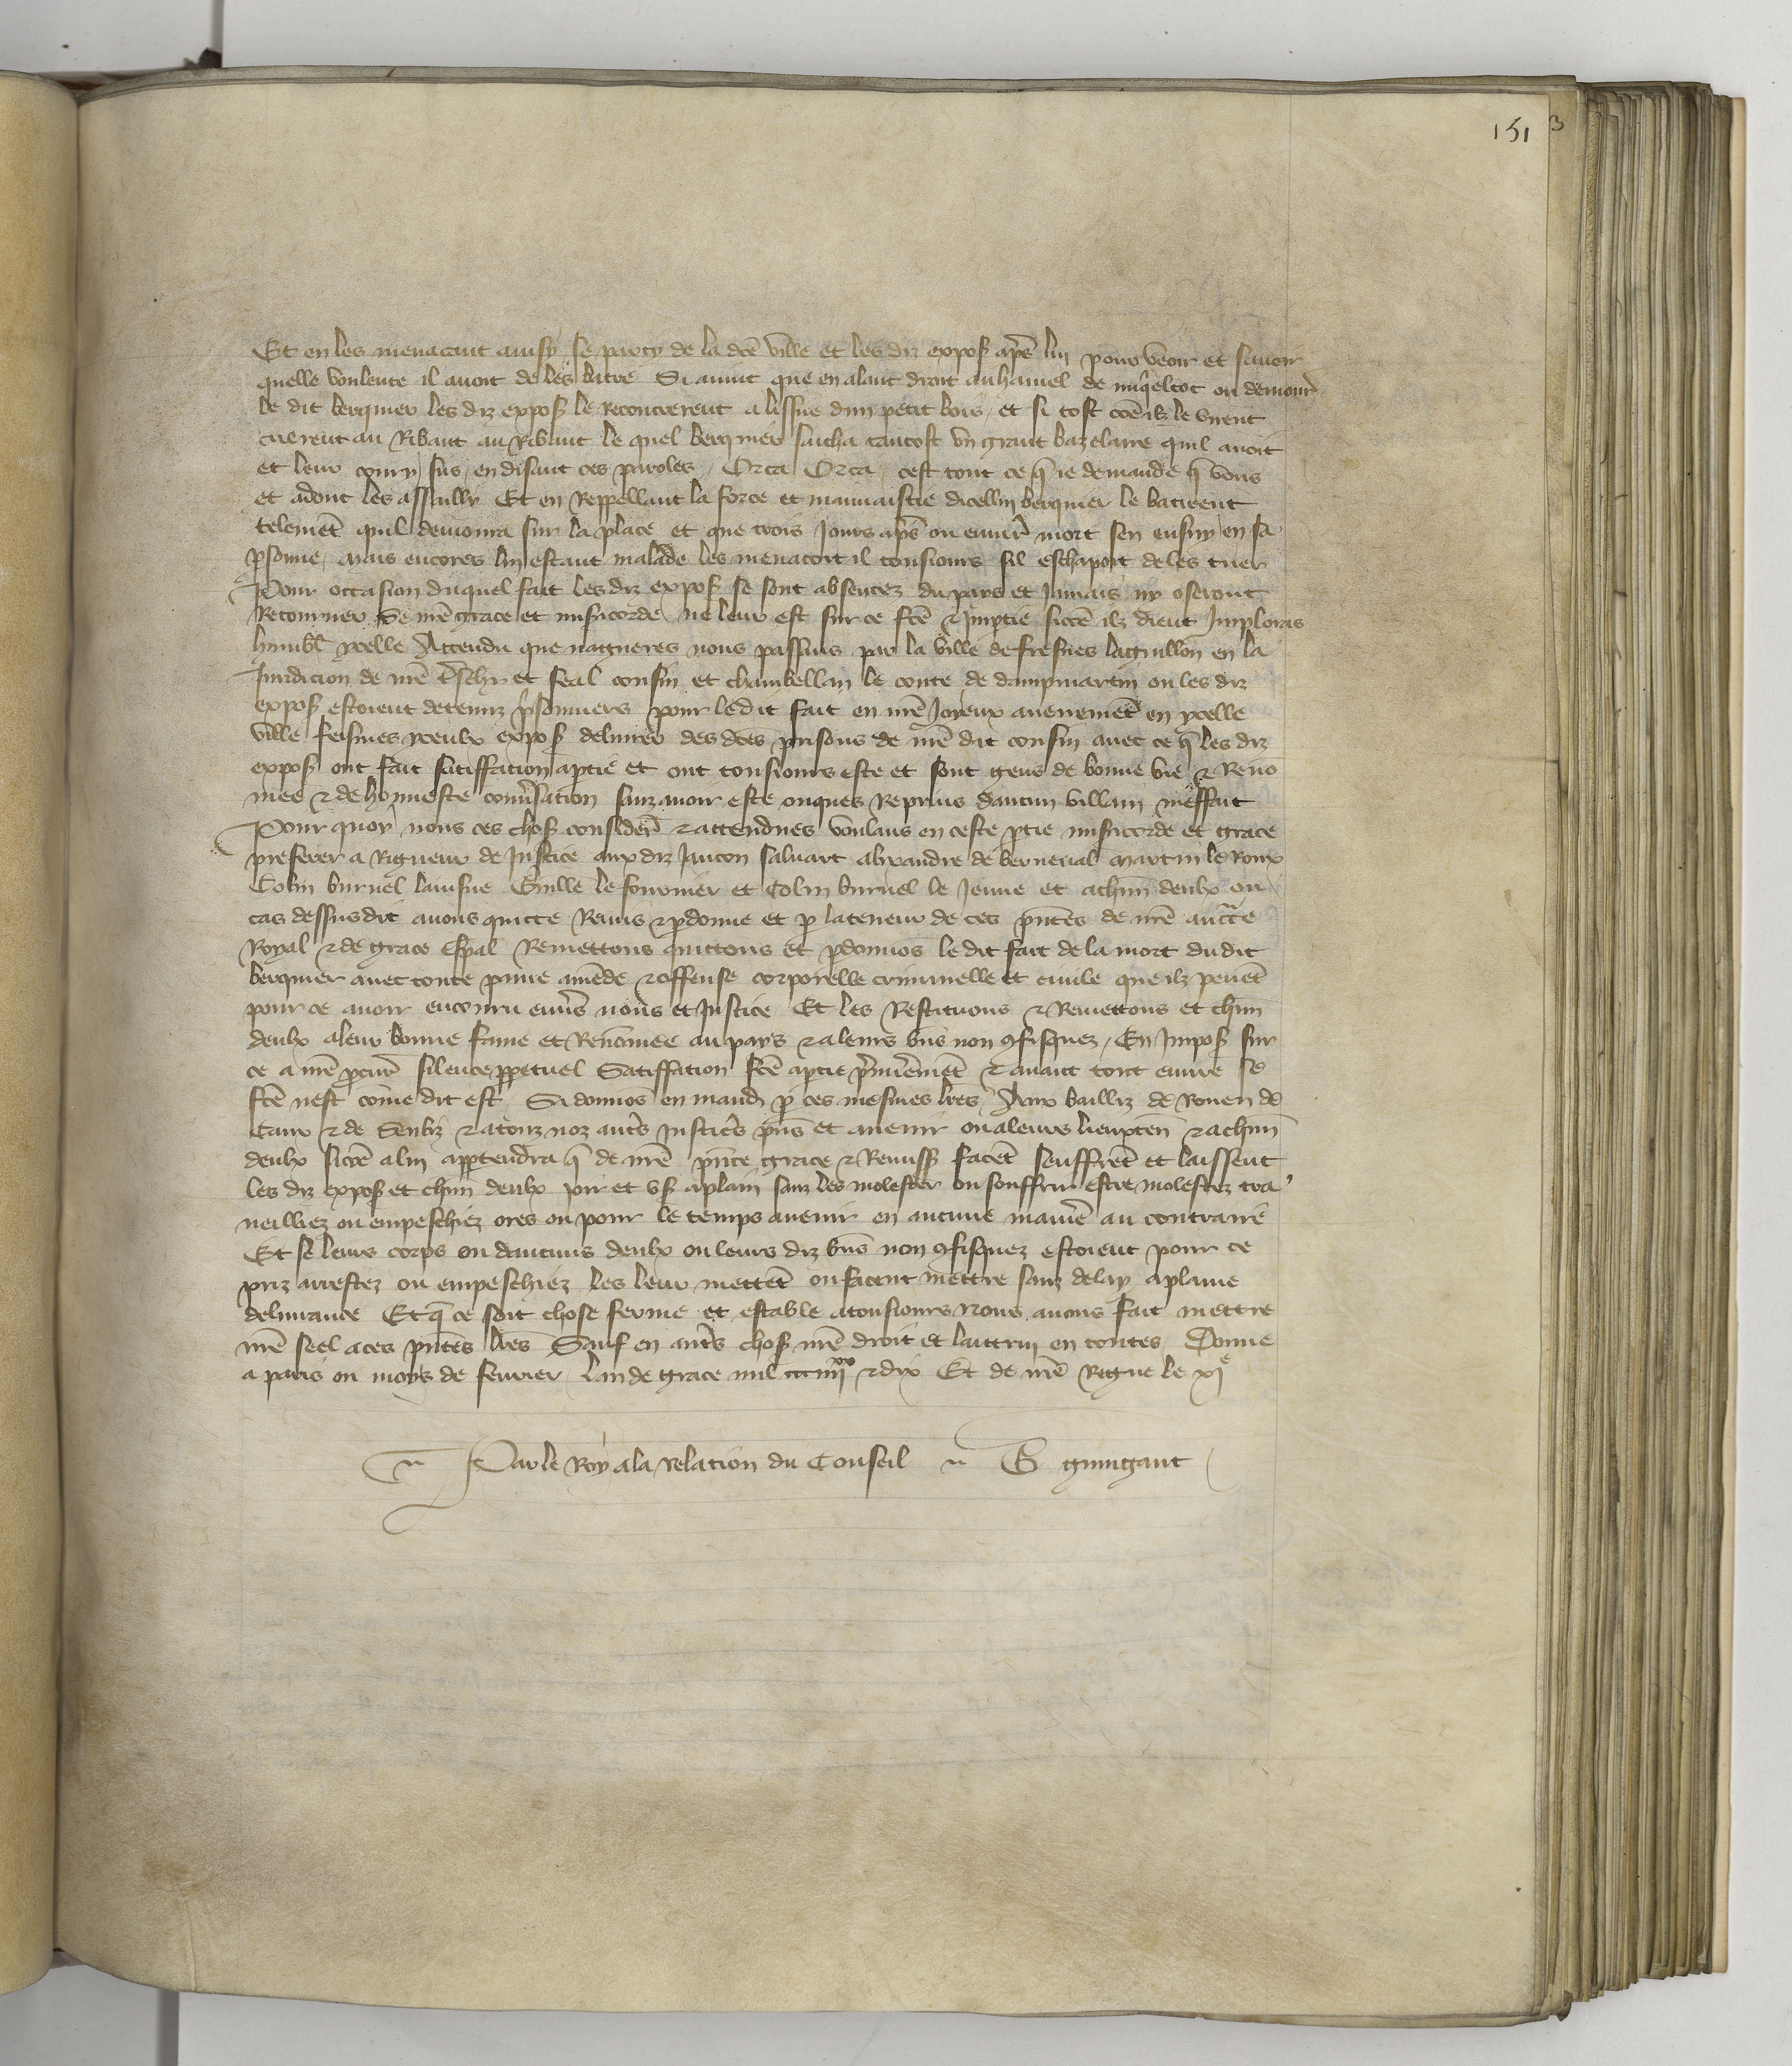 151
Et en les menacant ainsy se party de la dcē ville et les diz expos aps lui pour veoir et savoir
quelle voulente il avoit de les batre Si avint que en alant droit au hamel de miqeltot ou demour
le dit berquier les diz expos le rencontrerent a lissue dun petit bois et si tost cōe ilz le virent
crierent au Ribaut au Ribaut le quel berquier sacha tantost un grant bazelaire quil avoit
et leur couru sus en disant ces paroles Orca Orca cest tout ce q̄ ie demande q̄ vous
et adont les assailly Et en Reppellant la force et mauvaistie dicellui berquier le batirent
telemēt quil demoura sur la place et que trois Jours aps ou envir mort sen ensuy en sa
psonne mais encores lui estant malade les menacoit il tousiours sil eschapoit de les tuer
Pour occasion duquel fait les diz expos se sont absentez du pays et Jamais ny oseront
Retourner Se nrē grace et misicorde ne leur est sur ce fcē & Imptie sicōe ilz dient Implorās
humbl ycelle Attendu que nagueres nous passins par la ville de fresnes laguillon en la
Juridicion de nrē tschr et feal cousin et chambellan le conte de dampmartin ou les diz
expos estoient detenuz prisonniers pour ledit fait en nrē Joyeux avenemēt en ycelle
ville feismes yceulx expos delivrer des dcēs prisons de nrē dit cousin avec ce q̄ les diz
expos ont fait satiffation aptie et ont tousiours este et sont gens de bonne vie & Reno
mee & de honneste convsation sanz avoir este onques Reprins daucun villain meffait
Pour quoy nous ces chos consider & attendues voulans en ceste ptie misicorde et grace
preferer a Rigueur de Justice aux diz Jancon salvart alixandre de berneval martin le Roux
Colin burnel lainsne Guille le fournier et Colin burnel le Jeune et achūn deulx ou
cas dessusdit avons quicte Remis & pdonne et p la teneur de ces pntēs de nrē auctte
Royal & de grace espal Remettons quittons et pdonnōs le dit fait de la mort dudit
berquier avec toute peine amēde & offense corporelle criminelle et civile que ilz pevēt
pour ce avoir encouru envs nous et Justice Et les Restituons & Remettons et chūn
deulx a leur bonne fame et Renōmee au pays & a leurs bns non 9fisquez En Impos sur
ce a nrē pcur silence ppetuel Satiffation fcē aptie pmieremēt & avant tout euvre se
fcē nest come dit est Si donnōs en mand p ces mesmes lres Aux bailliz de Rouen de
Caux & de Senliz & a touz noz autrs Justicrs pns et avenir ou a leurs lieuxten & achūn
deulx sicōe a lui appartendra q̄ de nrē pnte grace & Remiss facēt seuffrēt et laissent
les diz expos et chūn deulx joir et us a plain sanz les molester ou souffrir estre molestez tra
veilliez ou empeschiez ores ou pour le temps avenir en aucune maniē au contraire
Et se leurs corps ou daucuns deulx ou leurs diz bns non 9fisquez estoient pour ce
priz arrestez ou empeschiez les leur mettēt ou facent mettre sanz delay a plaine
delivrance Et q̄ ce soit chose ferme et estable a tousiours nous avons fait mettre
nrē seel a ces pntēs lres Sauf en autrs chos nrē droit et lautrui en toutes Donne
a paris ou moys de fevrier lan de grace mil ccc iiiixx & dix Et de nrē Regne le xie
Par le Roy a la relation du Conseil G guingant